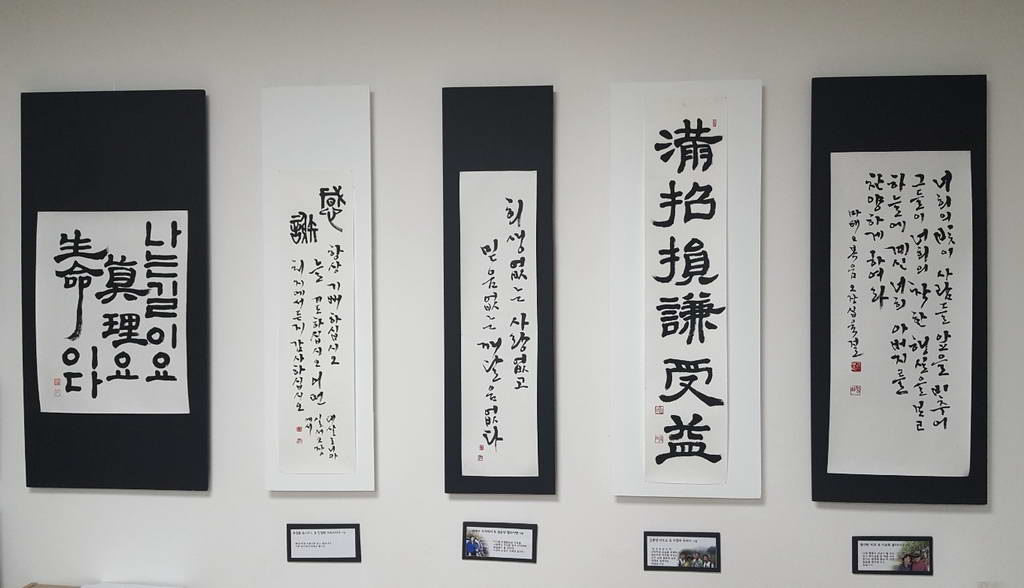 나는길이요
眞理요
生命이다
感
謝
항상 기뻐하십시오
늘 기도하십시오 어떤
처지에서든지 감사하십시오
희생 없는 사랑 없고
믿음 없는 깨달음 없다
滿招損謙受益
너희의 빛이 사람들 앞을 비추어
그들이 너희의 착한 행실을 보고
하늘에 계신 너희 아버지를
찬양하게 하여라
마태오복음 오장십육절